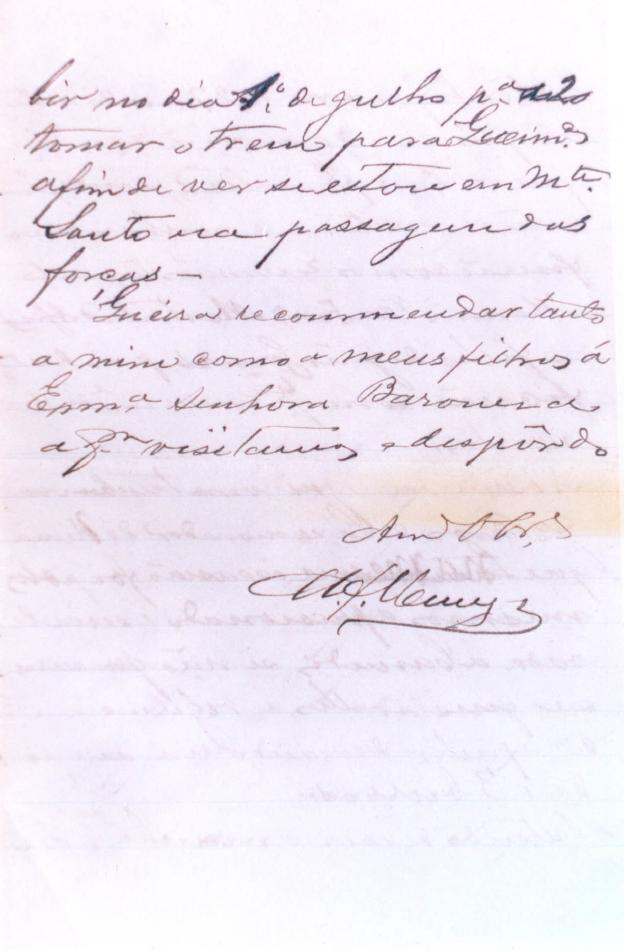 bir no dia 1.º de julho p.ª a 2
tomar o trem para Queim.ᵈˢ
afim de ver se estou em Mᵗᵉ.
Santo na passagem das
forcas —
Queira recommendar tanto
a mim como a meus filhos á
Exmᵃ Senhora Baroneza
a qᵐ visitamos, e despôr do
Amº Obrº